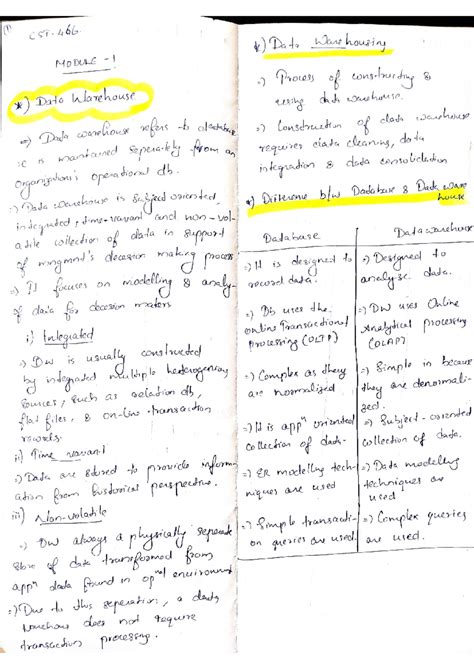 (1)
CST-466
MODULE -1
*) Data Warehouse
=) Data warehouse refers to database
is maintained seperately from an
Organization's operational db.
=) Data warehouse is subject oriented,
integrated, time-variant and non-vol-
atile collection of data in support
of mngmnt's decision making process
=) It focuses on modelling & analy-
of data for decision makers
i) Integrated
=) DW is usually constructed
by integrated multiple heterogeniq
sources, such as relation db,
flat files, & on-line-transaction
records.
ii) Time variant
=) Data are stored to provide inform-
ation from historical perspective.
iii) Non-volatile
=) DW always a physically seperate
store of data transformed from
appn data found in opnal environmnt
=) Due to this seperation, a data
warehouse does not require
transaction processing.
*) Data Warehousing
=) Process of constructing &
using data warehouse.
=) Construction of data warehouse
requires data cleaning, data
integration & data consolidation
*) Difference b/w Database & Data ware
house
Database
Data warehouse
=) It is designed to
record data.
=) Db uses the
online Transactional
Processing (OLTP)
=) Complex as they
are normalized
=) It is appn oriented
collection of data-
=) ER modelling tech-
niques are used
=) Simple transacti-
on queries are used
=) Designed to
analyse data.
=) DW uses Online
Analytical processing
(OLAP)
=) Simple in because
they are denormali-
zed.
=) Subject-oriented
collection of data.
=) Data modelling
techniques are
used
=) Complex queries
are used.